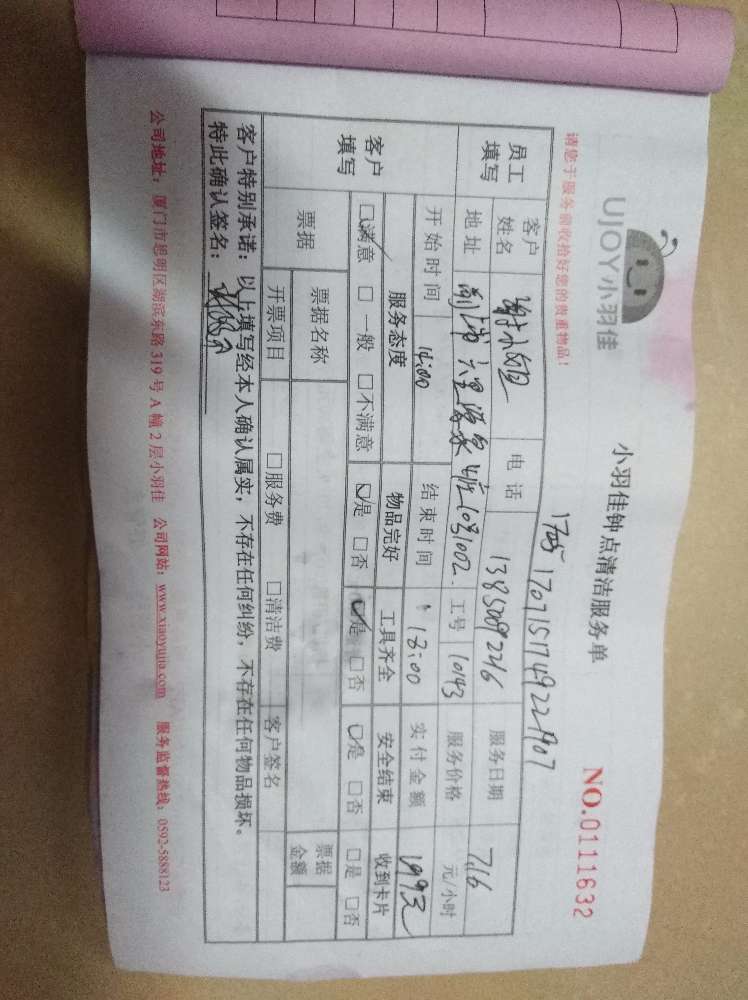 UJOY小羽佳
小羽佳钟点清洁服务单
NO.0111632
请您于服务前收拾好您的贵重物品！
17071517492221907
员工填写
客户姓名 谢小姐 电话 服务日期 7.16
地址 工号 10193 服务价格 元/小时
开始时间 14:00 结束时间 18:00 实付金额
客户填写
服务态度 物品完好 工具齐全 安全结束 收到卡片
☑满意 □一般 □不满意 ☑是 □否 ☑是 □否 ☑是 □否 □是 □否
票据 票据名称 客户签名 票据金额
开票项目 □服务费 □清洁费
客户特别承诺：以上填写经本人确认属实，不存在任何纠纷，不存在任何物品损坏。
特此确认签名：
公司地址：厦门市思明区湖滨东路319号A幢2层小羽佳 公司网站：www.xiaoyujia.com 服务监督热线：0592-5888123